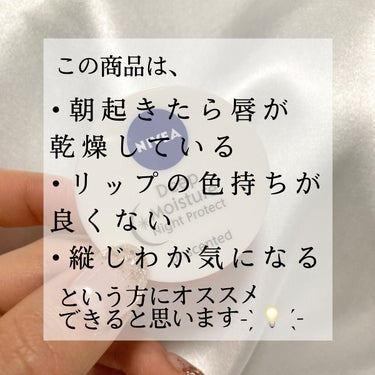 この商品は、
・朝起きたら唇が
乾燥している
・リップの色持ちが
良くない
・縦じわが気になる
という方にオススメ
できると思います- ̗̀ 💡 ̖́-
NIVEA
Deep
Moisture
Night Protect
scented